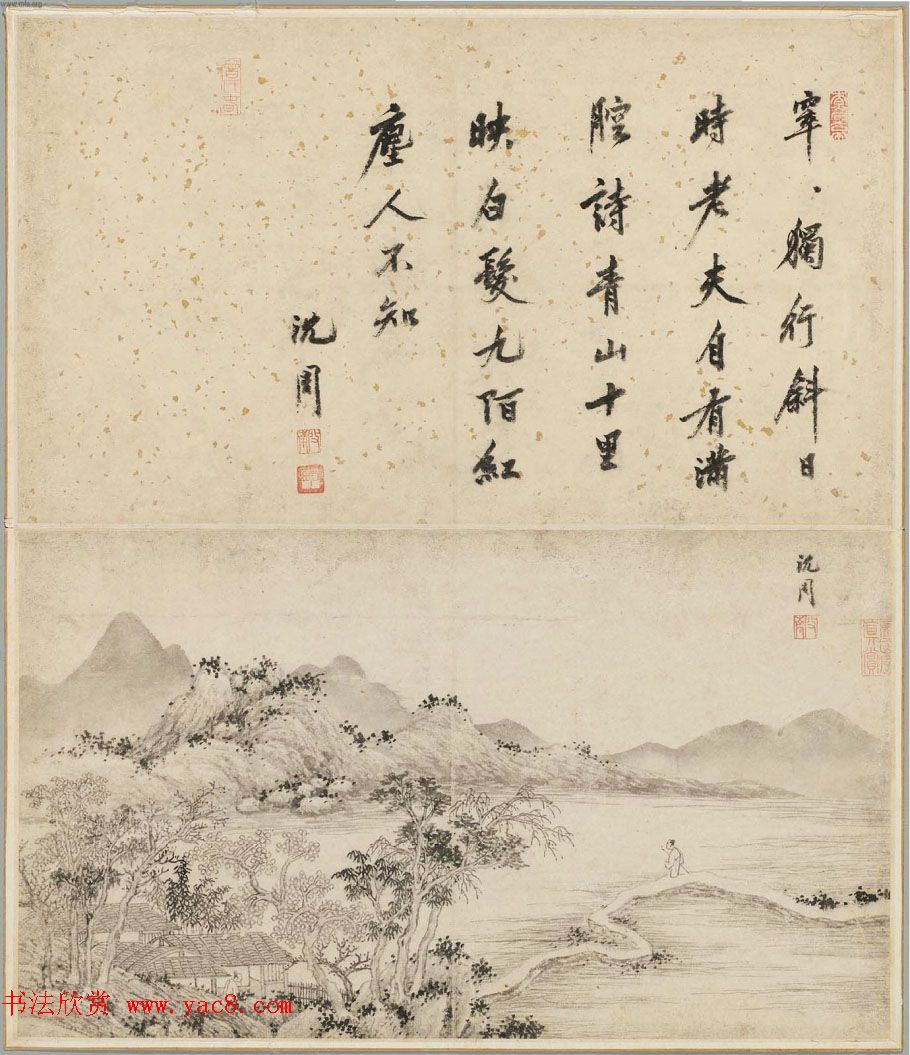 www.mfa.org
窣、獨行斜日
時老夫自有滿
腔詩青山十里
映白髮九陌紅
塵人不知
沈周
沈周
书法欣赏 www.yac8.com